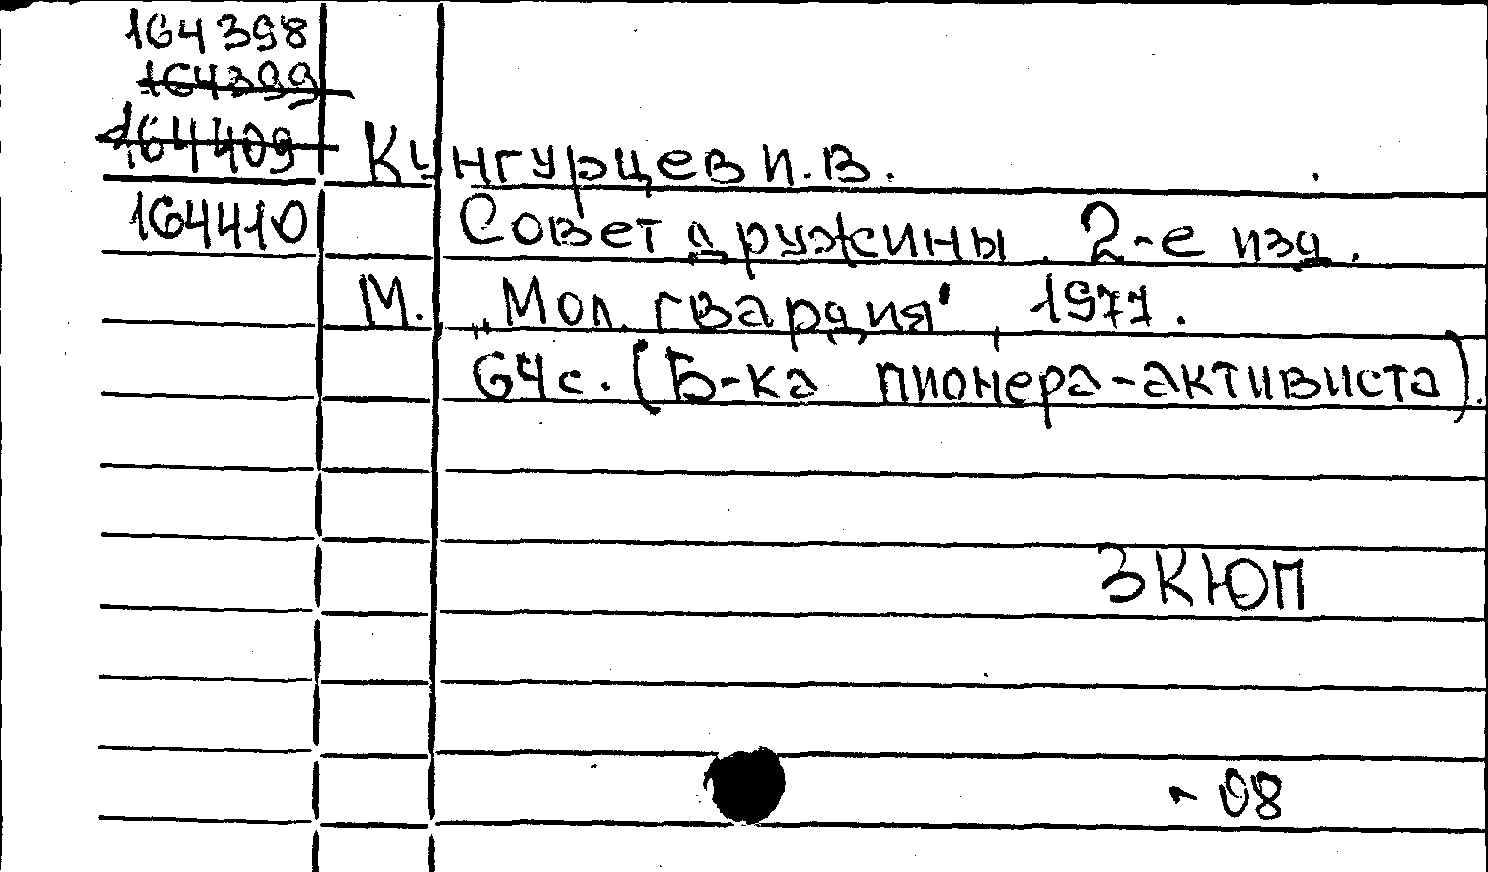 164398
164399
164409
Кунгурцев И.В.
164410
Совет дружины. 2-е изд.
М. „Мол. гвардия", 1977.
64с. (Б-ка пионера-активиста).
3 КЮП
- 08